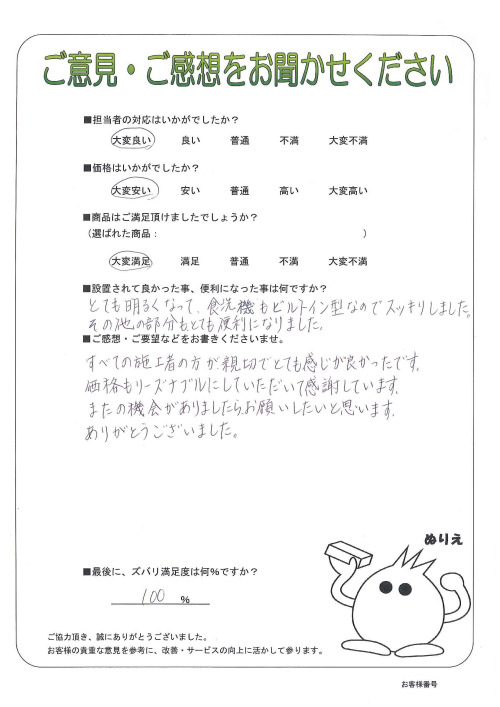 ご意見・ご感想をお聞かせください
■担当者の対応はいかがでしたか？
大変良い 良い 普通 不満 大変不満
■価格はいかがでしたか？
大変安い 安い 普通 高い 大変高い
■商品はご満足頂けましたでしょうか？
（選ばれた商品： ）
大変満足 満足 普通 不満 大変不満
■設置されて良かった事、便利になった事は何ですか？
とても明るくなって、食洗機もビルトイン型なのでスッキリしました。
その他の部分もとても便利になりました。
■ご感想・ご要望などをお書きくださいませ。
すべての施工者の方が親切でとても感じが良かったです。
価格もリーズナブルにしていただいて感謝しています。
またの機会がありましたらお願いしたいと思います。
ありがとうございました。
ぬりえ
■最後に、ズバリ満足度は何％ですか？
100 ％
ご協力頂き、誠にありがとうございました。
お客様の貴重な意見を参考に、改善・サービスの向上に活かして参ります。
お客様番号